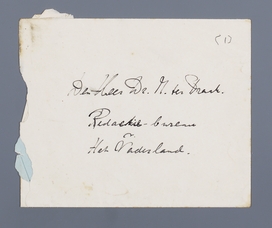 (1)
Den Heer Dr. M. ter Braak.
Redactie-bureau
v
Het Vaderland.